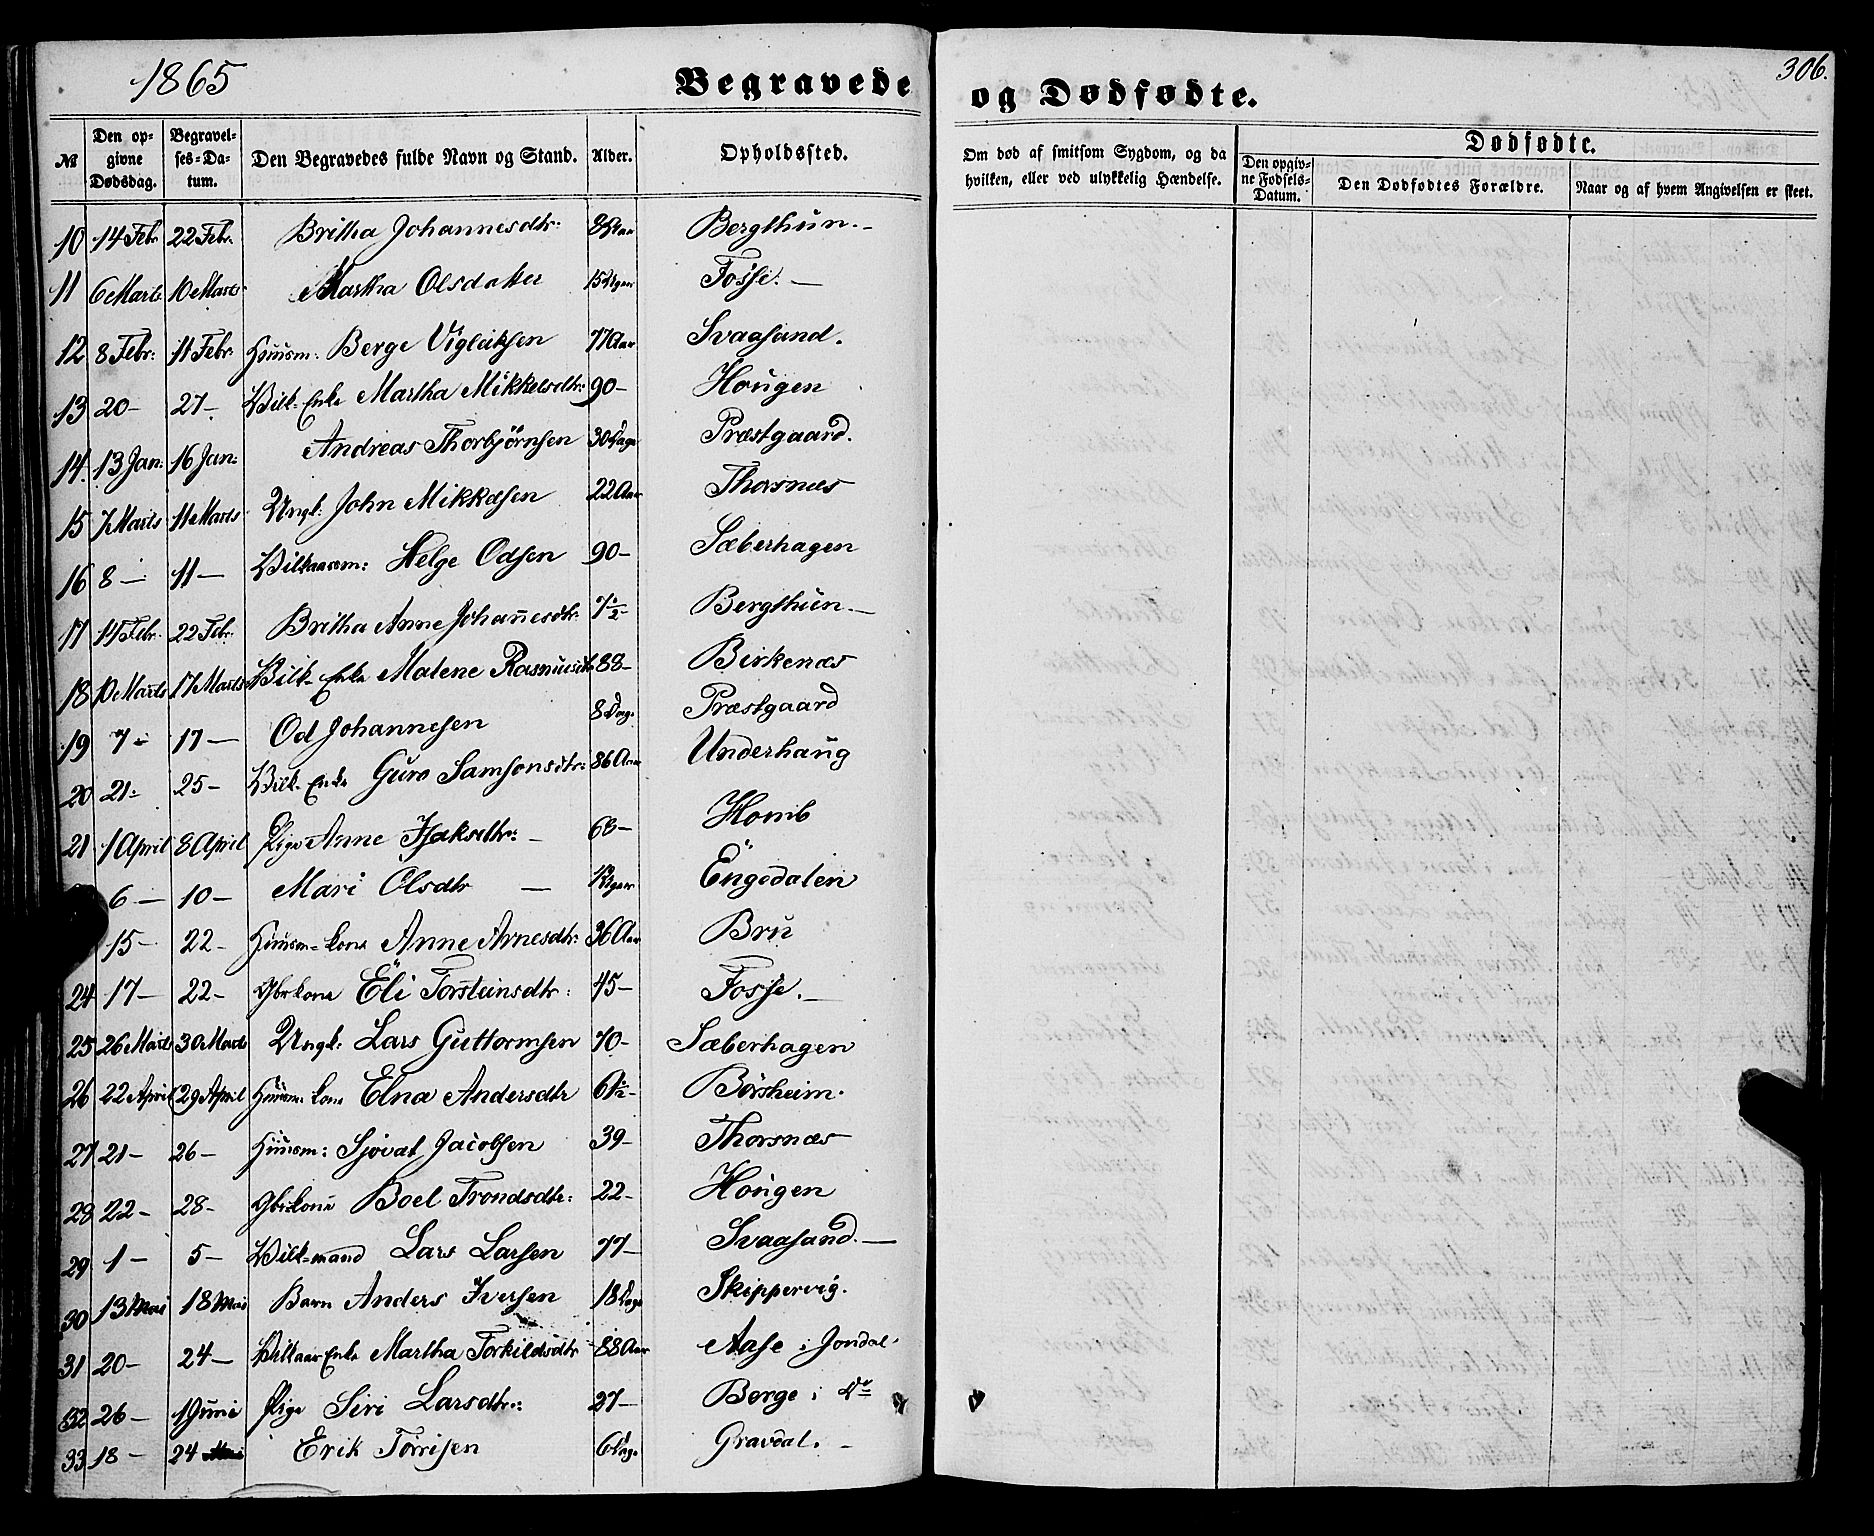 1865
Begravede
og Dødfødte.
306.
№
Den opgivne Dødsdag.
Begravelses-Datum.
Den Begravedes fulde Navn og Stand.
Alder.
Opholdssted.
Om død af smitsom Sygdom, og da hvilken, eller ved ulykkelig Hændelse.
Dødfødte.
Den opgivne Fødsels-Datum.
Den Dødfødtes Forældre.
Naar og af hvem Angivelsen er skeet.
10 14 Febr 22 Febr. Britha Johannesdtr: Bergthun.-
11 6 Marts 10 Marts Martha Olsdatter 15 Uger Fosse. -
12 8 Febr: 11 Febr: Huusm: Berge Vigleiksen 77 Aar Svaasand.
13 20- 27- Vilk. Enke Martha Mikkelsdtr: 90- Hougen
14. 13 Jan: 16 Jan: Andreas Thorbjörnsen 30 Dage Præstgaard.
15 7 Marts 11 Marts Ungk: John Mikkelsen 22 Aar Thorsnæs
16 8- 11- Vilkaarsm: Helge Odsen 90- Sæberhagen
17 14 Febr. 22 Febr. Britha Anne Johan̄esdtr. 7½- Bergthun.-
18 10 Marts 17 Marts Vilk- Enke Malene Rasmusdtr 88- Birkenæs
19 7- 17- Od Johannesen 8 Dage Præstgaard
20 21- 25- Vilk- Enke Guro Samsonsdtr: 86 Aar Underhaug
21 1 April 8 April Pige Anne Isaksdtr: - 68- Homb
6- 10- Mari Olsdtr - Uger Engedalen
15- 22- Huusm- kone Anne Arnesdtr: 36 Aar Bru
24 17- 22- Gbrkone Eli Torsteinsdtr: 45- Fosse. -
25 26 Marts 30 Marts Ungk: Lars Guttormsen 70- Sæberhagen
26 22 April 29 April Huusm: kone Elna Andersdtr 61½- Börsheim.
27 21- 26- Huusm: Sjovat Jacobsen 39- Thorsnæs
28 22- 28- Gbrkone Boel Trondsdtr: 22- Hougen
29 1- 5- Vilk-mand Lars Larsen 77- Svaasand. -
30 13 Mai 18 Mai Barn Anders Iversen 18 Dage Skippervig.
31 20- 24- Vilkaar Enke Martha Torkildsdtr 88 Aar Aase i Jondal
32 26- 1 Juni Pige Siri Larsdtr: 27- Berge i Do
33 18- 24 Erik Torrisen 6 Dage Gravdal. -